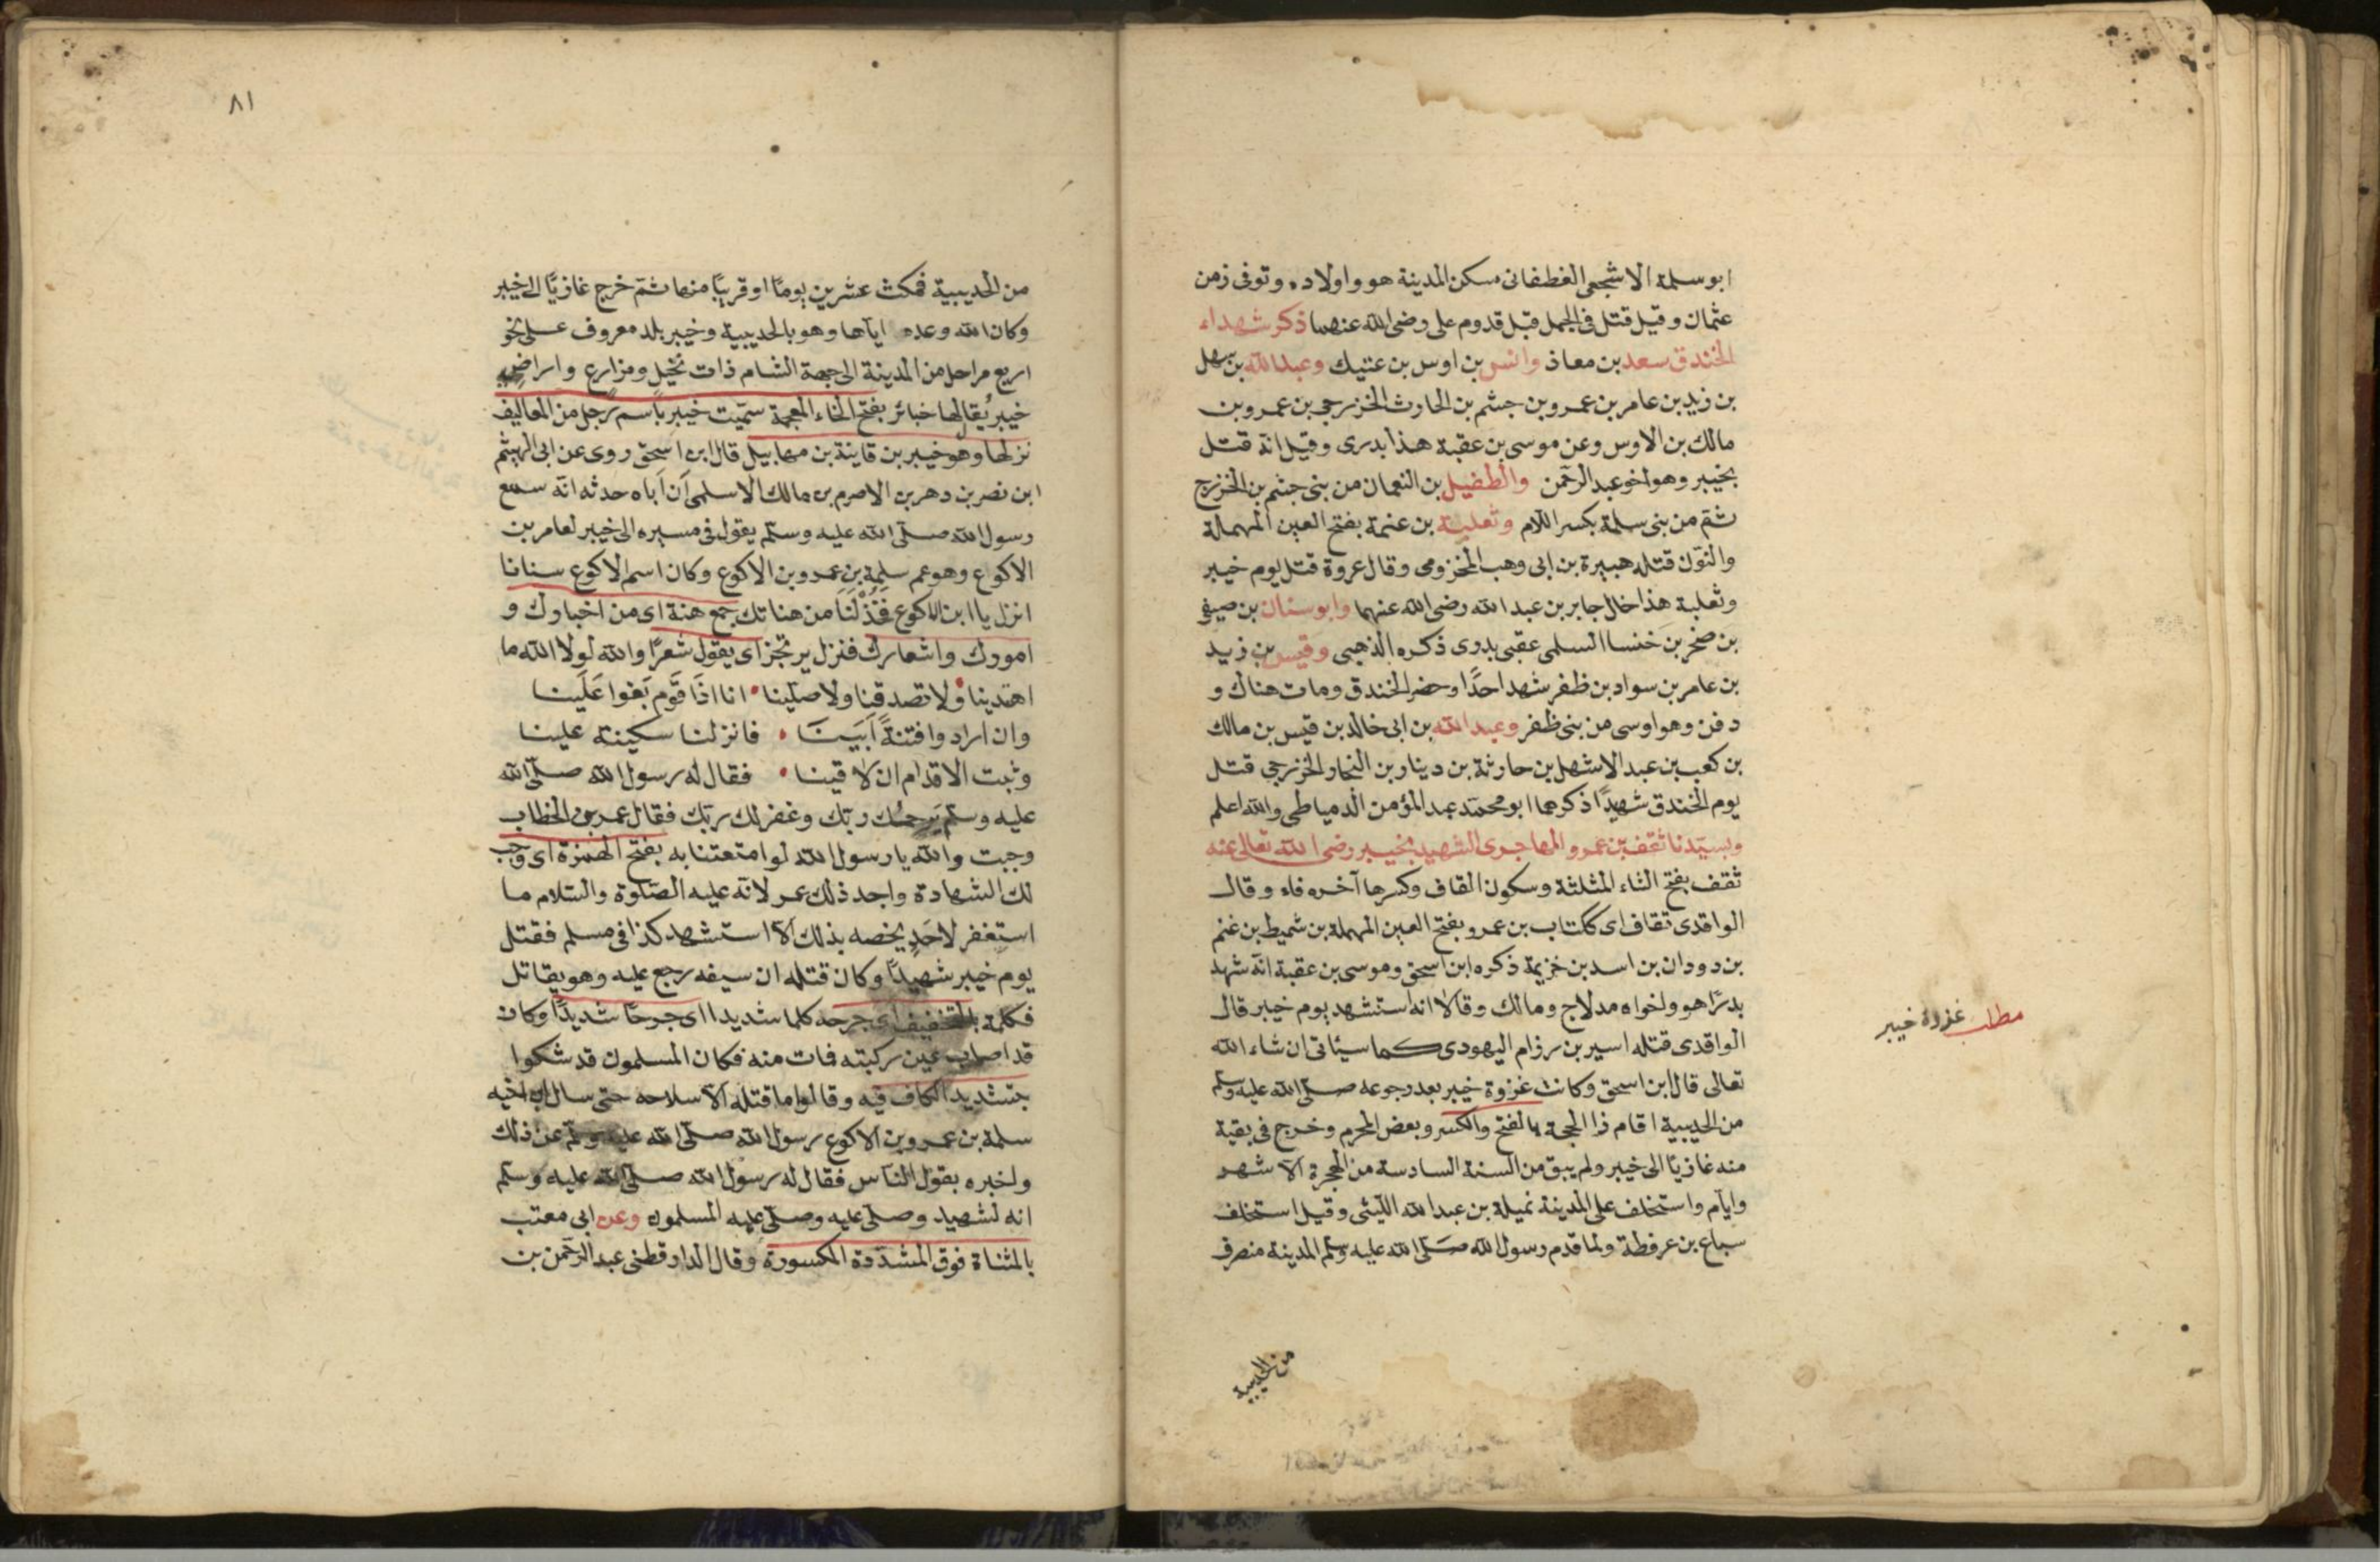 ابو سلمة الاشجعى الغطفانى سكن المدينة هو واولاده وتوفى زمن
عثمان وقيل قتل فى الجمل قبل قدوم على رضى الله عنهما ذكر شهداء
الخندق سعد بن معاذ وانس بن اوس بن عتيك وعبد الله بن سهل
بن زيد بن عامر بن عمرو بن جشم بن الحارث الخزرجى بن عمرو بن
مالك بن الاوس وعن موسى بن عقبة هذا بدرى وقيل انه قتل
بخيبر وهو اخو عبد الرحمن والطفيل بن النعمان من بنى جشم بن الخزرج
ثم من بنى سلمة بكسر اللام وثعلبة بن عنمة بفتح العين المهملة
والنون قتله هبيرة بن ابى وهب المخزومى وقال عروة قتل يوم خيبر
وثعلبة هذا خال جابر بن عبد الله رضى الله عنهما وابو سنان بن صيفى
بن صخر بن خنسا السلمى عقبى بدرى ذكره الذهبى وقيس بن زيد
بن عامر بن سواد بن ظفر شهد احدًا وحضر الخندق ومات هناك و
دفن وهو اوسى من بنى ظفر وعبد الله بن ابى خالد بن قيس بن مالك
بن كعب بن عبد الاشهل بن حارثة بن دينار بن النجار الخزرجى قتل
يوم الخندق شهيدًا ذكرهما ابو محمد عبد المؤمن الدمياطى والله اعلم
وبسيّدنا ثقف بن عمرو المهاجرى الشهيد بخيبر رضى الله تعالى عنه
ثقف بفتح الثاء المثلثة وسكون القاف وكسرها آخره فاء وقال
الواقدى ثقاف اى ككتاب بن عمرو بفتح العين المهملة بن شميط بن غنم
بن دودان بن اسد بن خزيمة ذكره ابن اسحق وموسى بن عقبة انه شهد
بدرًا هو واخواه مدلاج ومالك وقالا انه استشهد يوم خيبر قال
الواقدى قتله اسير بن رزام اليهودى كما سيئاتى ان شاء الله
تعالى قال ابن اسحق وكانت غزوة خيبر بعد رجوعه صلى الله عليه وسلم
من الحديبية اقام ذا الحجة بالفتح والكسر وبعض المحرم وخرج فى بقية
منه غازيًا الى خيبر ولم يبق من السنة السادسة من الهجرة الا شهر
وايام واستخلف على المدينة نميلة بن عبد الله الليثى وقيل استخلف
سباع بن عرفطة ولما قدم رسول الله صلى الله عليه وسلم المدينة منصرف
من الحديبية
مطلب غزوة خيبر
٨١
من الحديبية فمكث عشرين يومًا او قريبًا منها ثم خرج غازيًا الى خيبر
وكان الله وعده اياها وهو بالحديبية وخيبر بلد معروف على نحو
اربع مراحل من المدينة الى جهة الشام ذات نخيل ومزارع واراضى
خيبر يُقال لها خبائر بفتح الخاء المعجمة سميت خيبر باسم رجل من المعاليف
نزلها وهو خيبر بن قاينة بن مهابيل قال ابن اسحق روى عن ابى الهيثم
ابن نصر بن دهر بن الاصرم بن مالك الاسلمى اَن اباه حدثه انه سمع
رسول الله صلى الله عليه وسلم يقول فى مسيره الى خيبر لعامر بن
الاكوع وهو عم سلمة بن عمرو بن الاكوع وكان اسم الاكوع سنانا
انزل يا ابن الاكوع فخذ لنا من هناتك جمع هنة اى من اخبارك و
امورك واشعارك فنزل يرتجز اى يقول شعرًا والله لولا الله ما
اهتدينا ولا تصدقنا ولا صلينا انا اذا قوم بَغوا عَلَينا
وان ارادوا فتنةً اَبَينَا فانزلنا سكينة علينا
وثبت الاقدام ان لاقينا فقال له رسول الله صلى الله
عليه وسلم يَرحمك ربك وغفر لك ربك فقال عمر بن الخطاب
وجبت والله يا رسول الله لو امتعتنا به بفتح الهمزة اى وجب
لك الشهادة واجد ذلك عمر لانه عليه الصلوة والسلام ما
استغفر لاحَدٍ يخصه بذلك الا استشهد كذا فى مسلم فقتل
يوم خيبر شهيدًا وكان قتله ان سيفه رجع عليه وهو يقاتل
فكلمة بالتخفيف اى جرحه كلما شديدا اى جرحًا شديدًا وكان
قد اصاب عين ركبته فمات منه فكان المسلمون قد شكوا
بتشديد الكاف فيه وقالوا ما قتله الا سلاحه حتى سال ابن اخيه
سلمة بن عمرو بن الاكوع رسول الله صلى الله عليه وسلم عن ذلك
واخبره بقول الناس فقال له رسول الله صلى الله عليه وسلم
انه لشهيد وصلى عليه وصلى عليه المسلمون وعن ابى معتب
بالمثناة فوق المشددة المكسورة وقال الدارقطنى عبد الرحمن بن